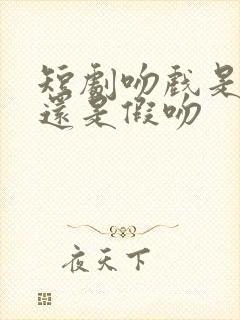 短劇吻戲是
還是假吻
夜天下